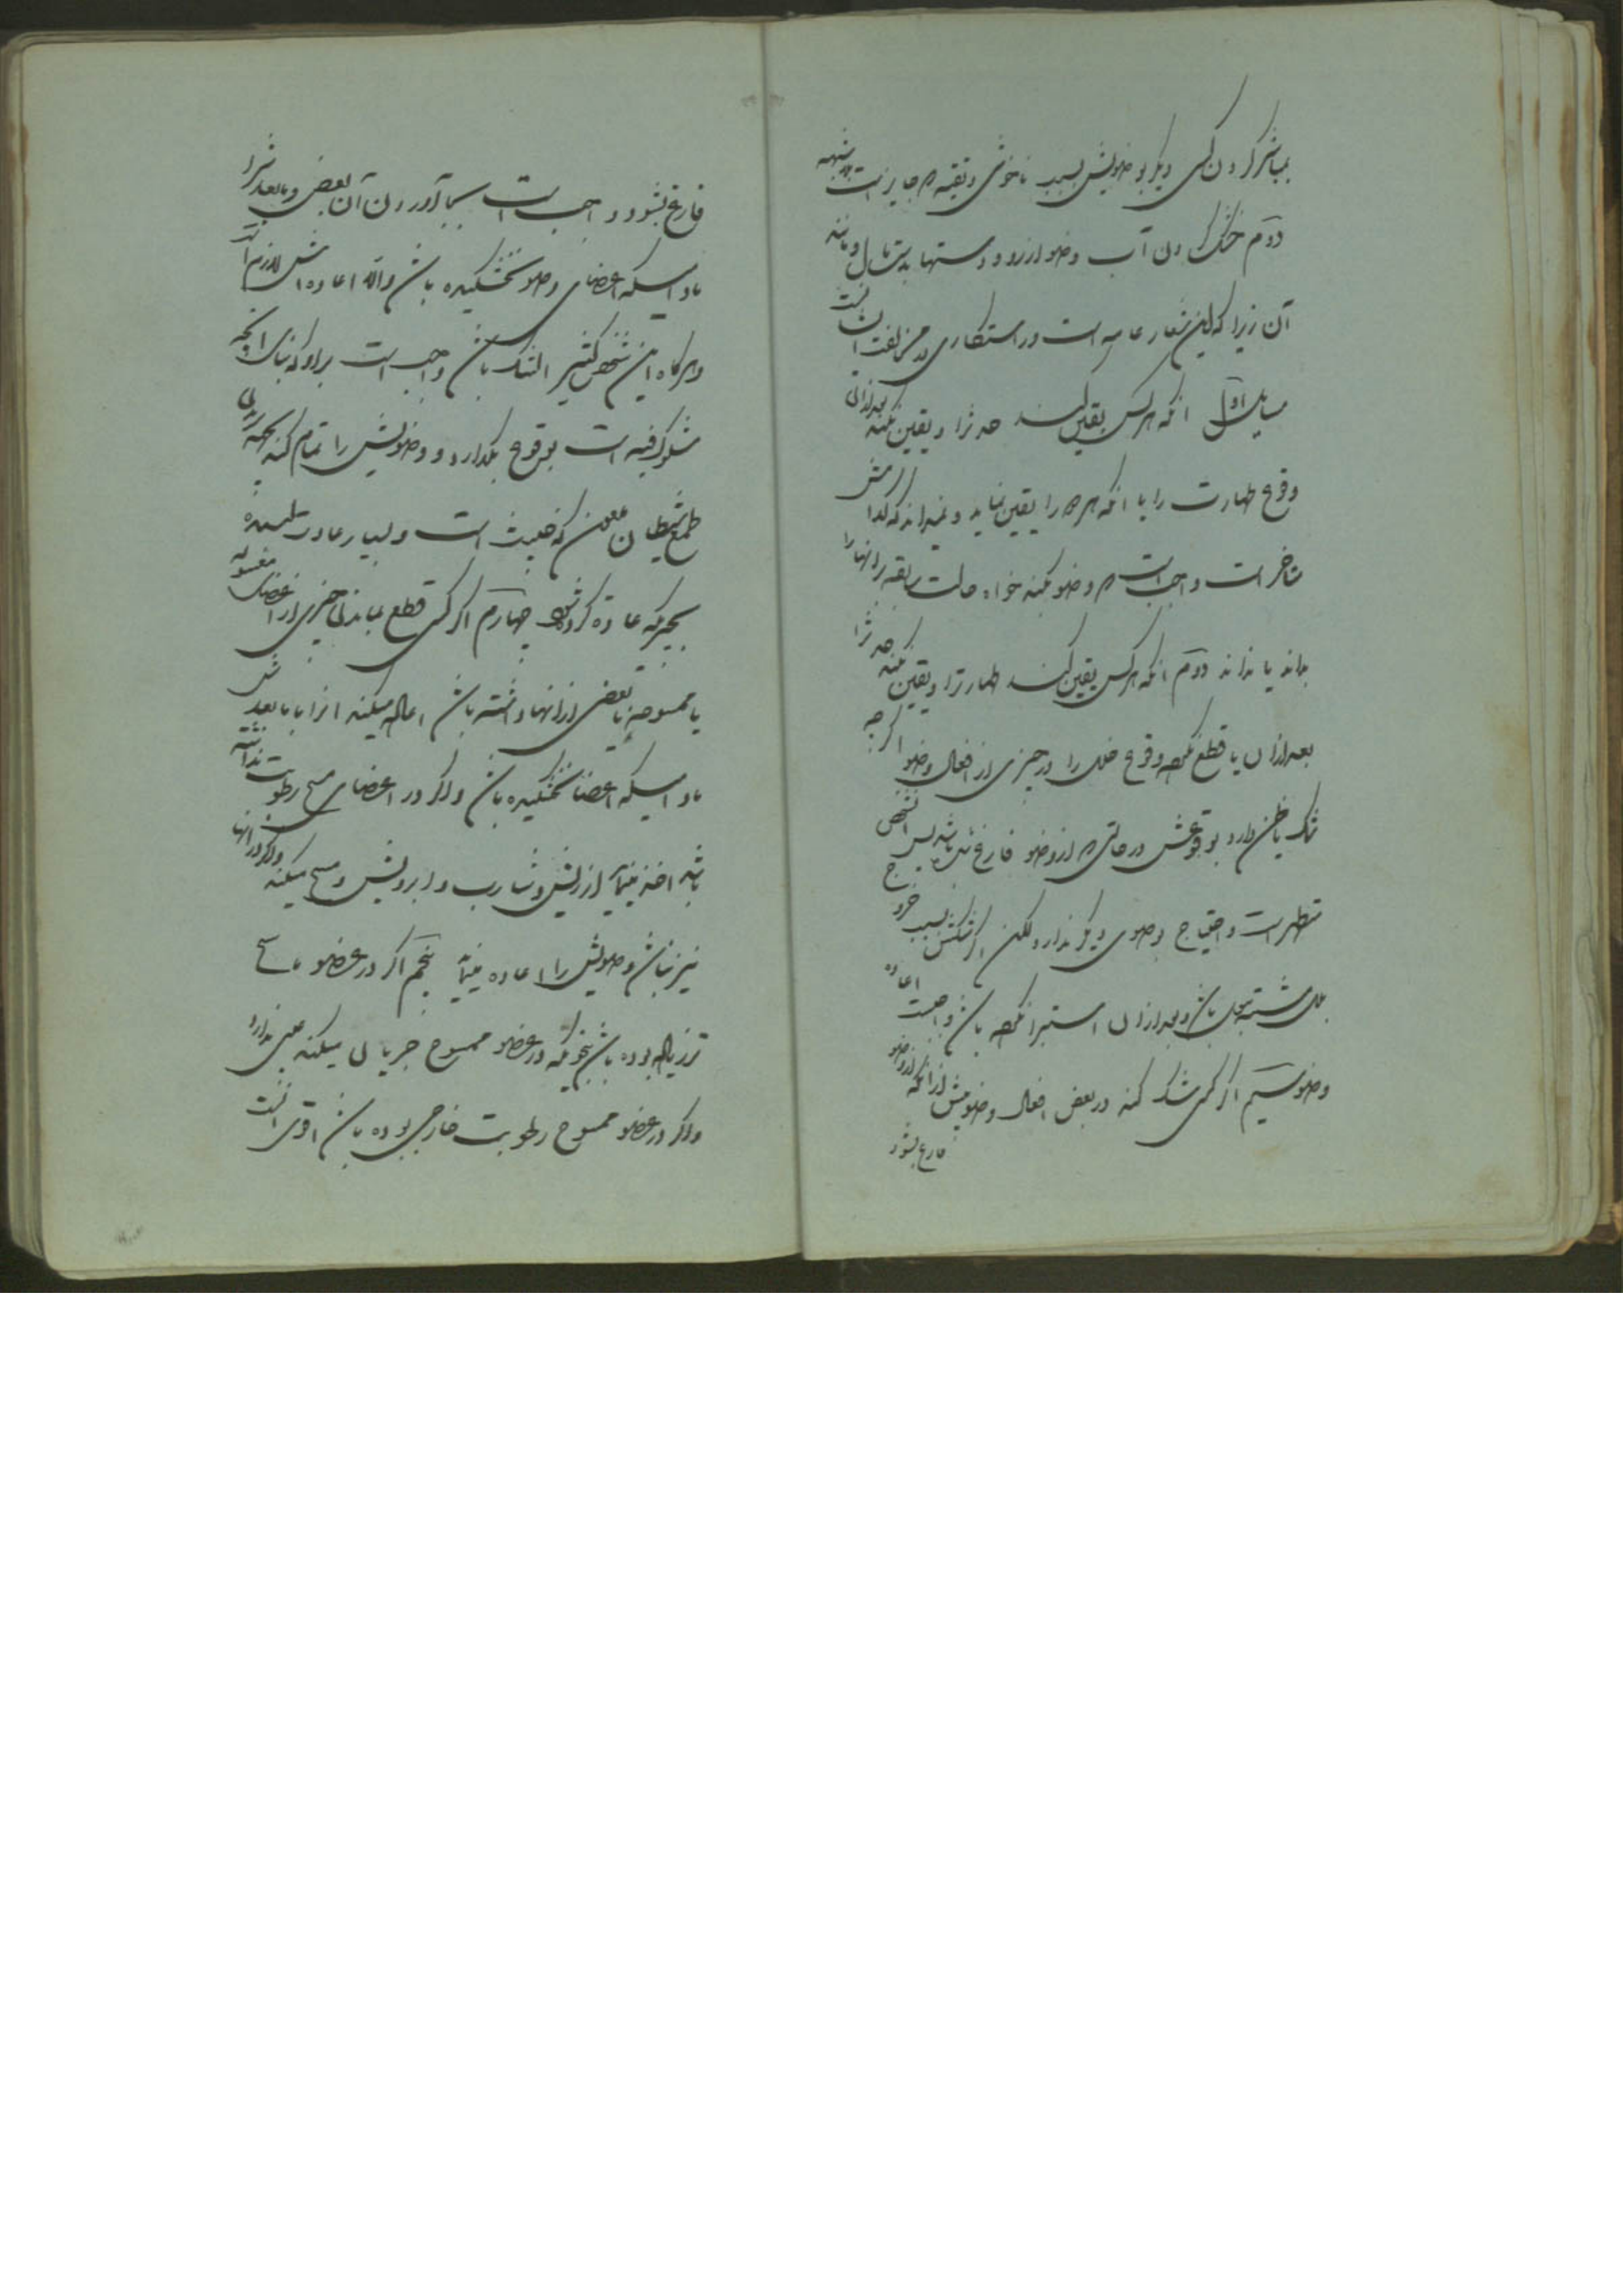 بمباشر کردن کسی دیگر بوضویش بسبب ناخوشی و تقیه که جایز است بی شبهه
دوم خشک کردن آب وضو از رو و دستها بدستمال و مانند
آن زیرا که این شعار عامه است و رستکاری در مخالفت ایشانست
مسایل اول انکه هر کس یقین کند حدثرا و یقین نکند بعد از ان
وقوع طهارت را یا انکه هر دو را یقین نماید و نمیداند که کدامش
متاخر است واجب است که وضو بکند خواه حالت سابقه بر انها را
بداند یا نداند دوم انکه هر کس یقین کند طهارترا و یقین نکند حدثرا
بعد از ان یا قطع نکند وقوع خلل را در چیزی از افعال وضو اگر چه
شک یا ظن دارد بوقوعش در حالتی که از وضو فارغ شده باشد پس آنشخص
متطهر است و احتیاج بوضوی دیگر ندارد ولکن اگر شکش بسبب خروج
بلل مشتبه ببول باشد و بعد از ان استبرا نکرده باشد واجبست اعاده
وضو سیم اگر کسی شک کند در بعض افعال وضو پیش از انکه از وضو
فارغ بشود
فارغ بشود واجب است بجا آوردن آن بعض و مابعدشرا
مادامیکه اعضای وضو نخشکیده باشد و الا اعاده اش لازم است
و هرگاه این شخص کثیر الشک باشد واجب است بر او که بنای انچه
مشکوک فیه است بوقوع بگذارد و وضویش را تمام کند بجهة
طمع شیطان ملعون که خبیث است و بسیار عادت کننده
بچیزیکه عادة کرده شود چهارم اگر کسی قطع نماید چیزی از اعضای مغسوله
یا ممسوحه یا بعضی از انها را نشسته باشد اعاده میکند انرا با مابعدش
مادامیکه اعضا نخشکیده باشد و اگر در اعضای مسح رطوبت نداشته
باشد اخذ مینماید از ریش و شارب و ابرویش و مسح میکند و اگر در انها
نیز نباشد وضویش را اعاده مینماید پنجم اگر در عضو ماسح
تری زیاد بوده باشد بنحویکه در عضو ممسوح جریان میکند عیبی ندارد
و اگر در عضو ممسوح رطوبت خارجی بوده باشد اقوی انست